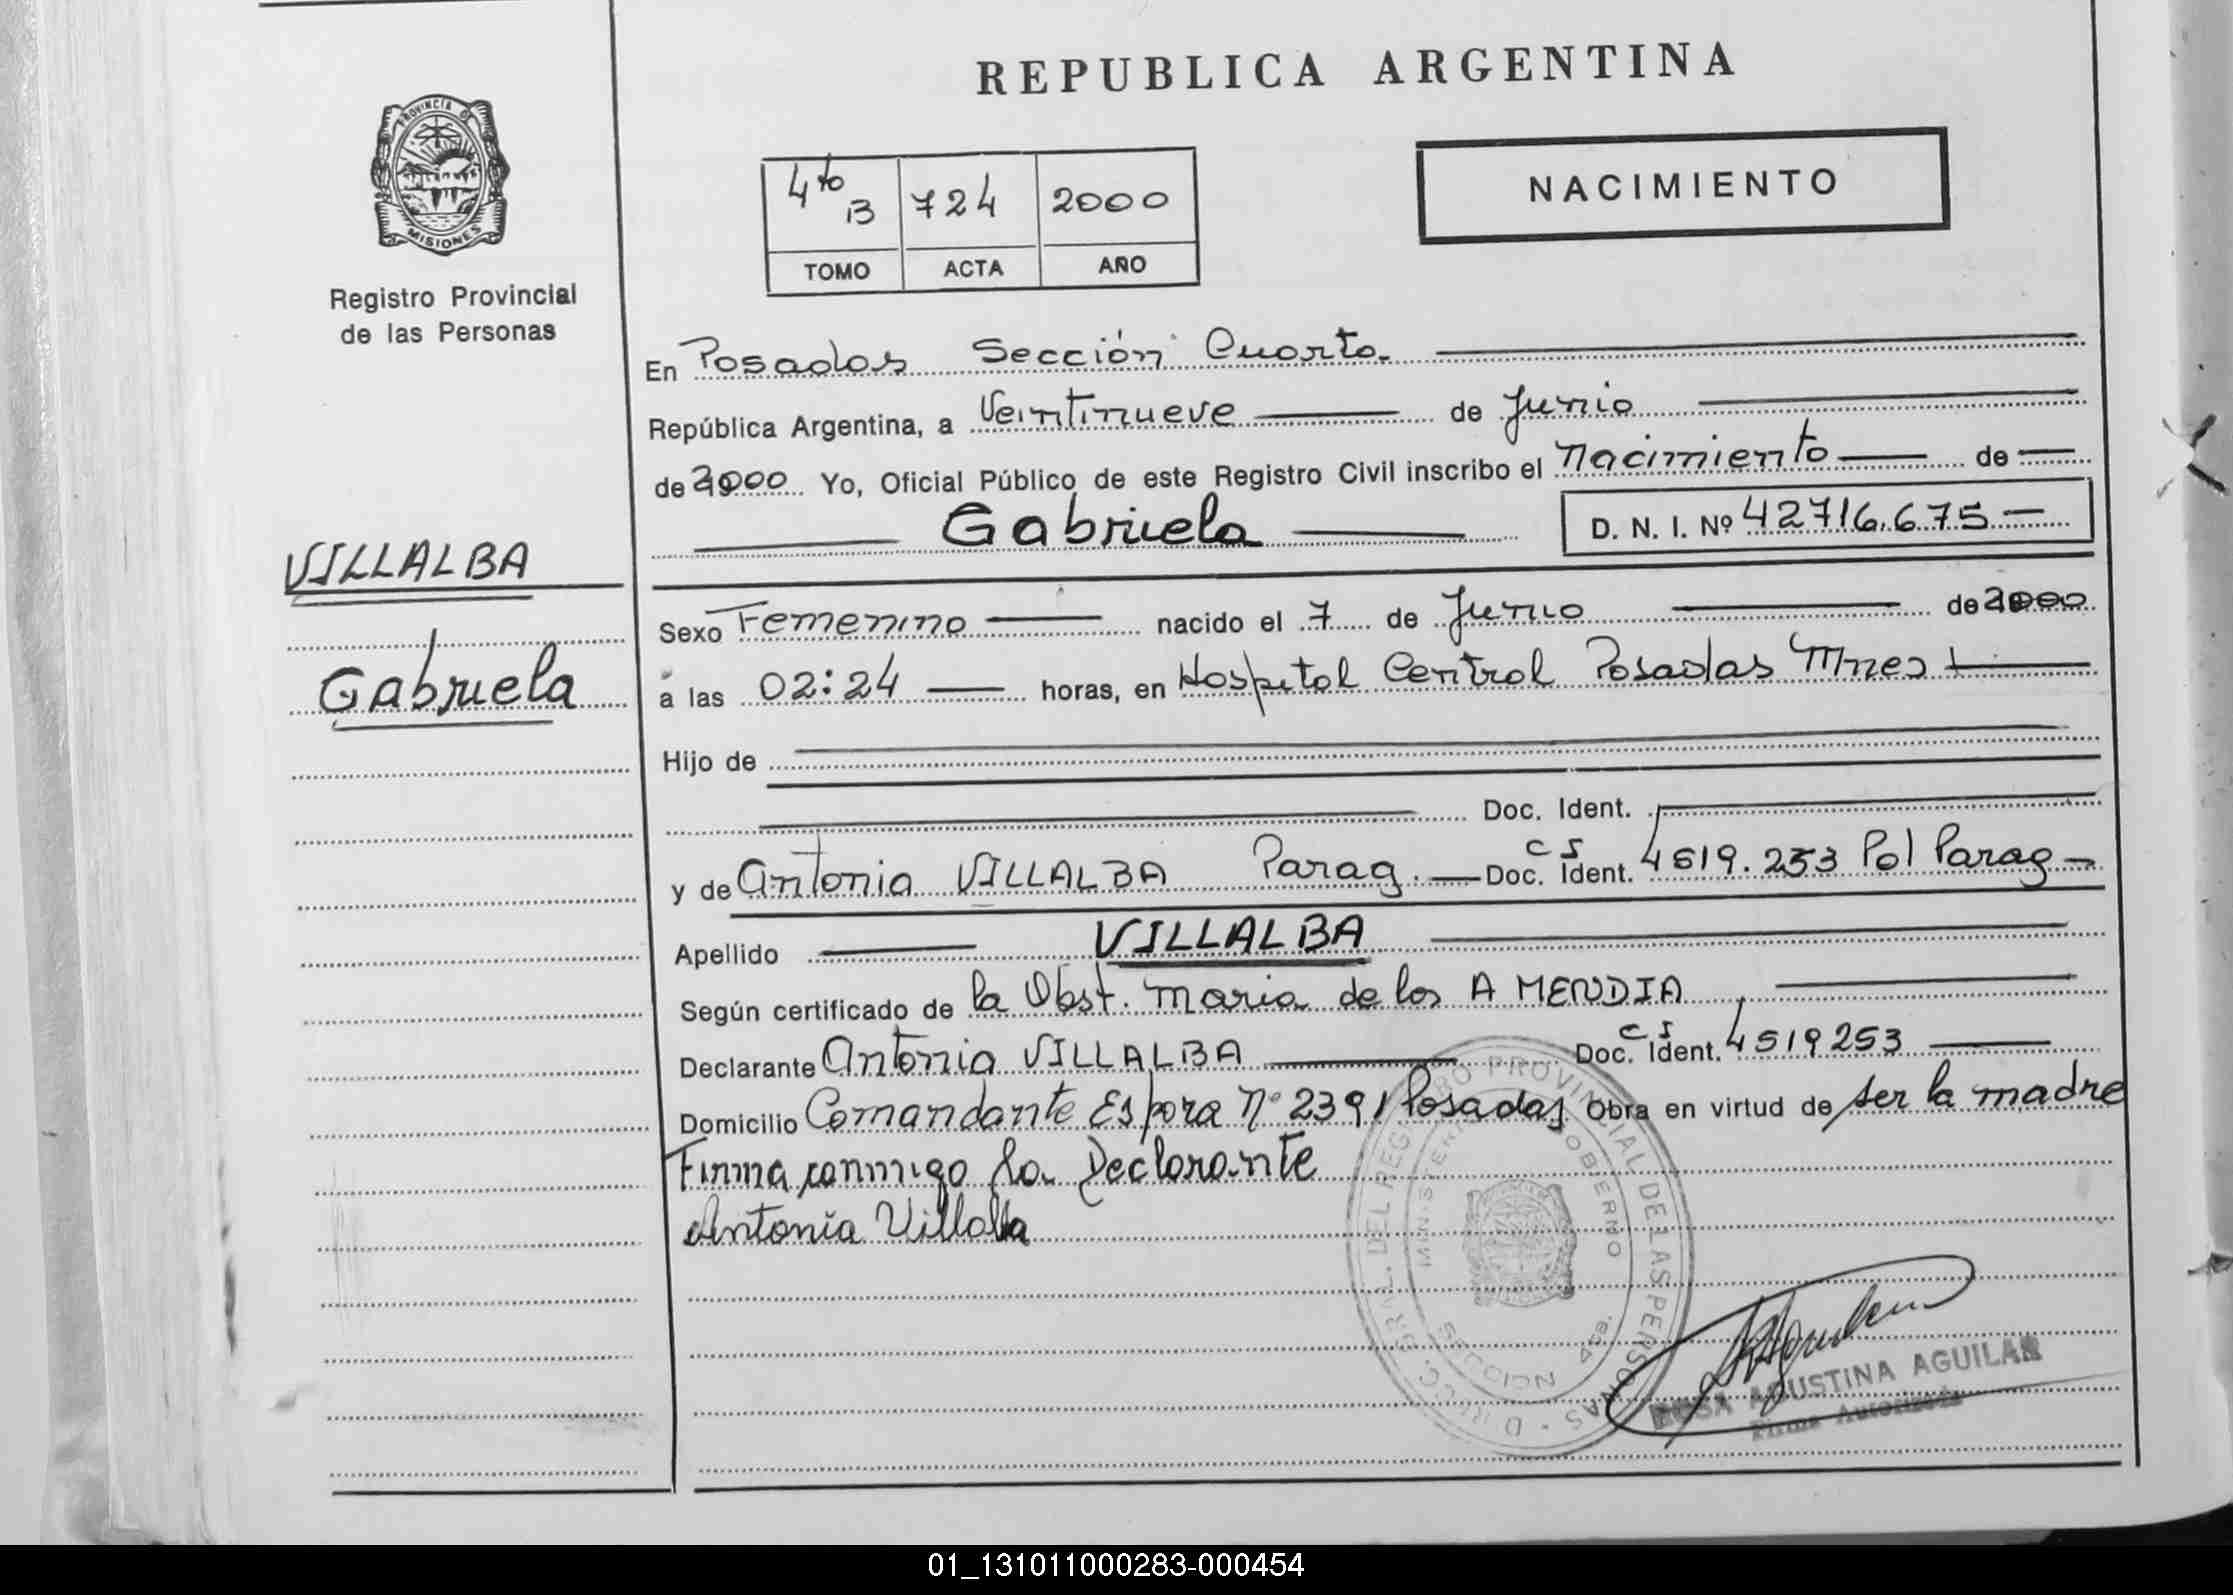 REPUBLICA ARGENTINA
PROVINCIA DE
MISIONES
Registro Provincial
de las Personas
4to B 724 2000
TOMO ACTA AÑO
NACIMIENTO
En Posadas Sección Cuarta
República Argentina, a Veintinueve de Junio
de 2000 Yo, Oficial Público de este Registro Civil inscribo el Nacimiento de
Gabriela D. N. I. Nº 42716.675
VILLALBA
Gabriela
Sexo Femenino nacido el 7 de Junio de 2000
a las 02:24 horas, en Hospital Central Posadas Mnes
Hijo de
Doc. Ident.
y de Antonia VILLALBA Parag. Doc. Ident. C I 4519.253 Pol Parag
Apellido VILLALBA
Según certificado de la Obst. Maria de los A MENDIA
Declarante Antonia VILLALBA Doc. Ident. C I 4519253
Domicilio Comandante Espora Nº 2391 Posadas Obra en virtud de ser la madre
Firma conmigo la Declarante
Antonia Villalba
DEL REGISTRO PROVINCIAL DE LAS PERSONAS
MINISTERIO GOBIERNO
ROSA AGUSTINA AGUILAR
Firma Autorizada
01_131011000283-000454